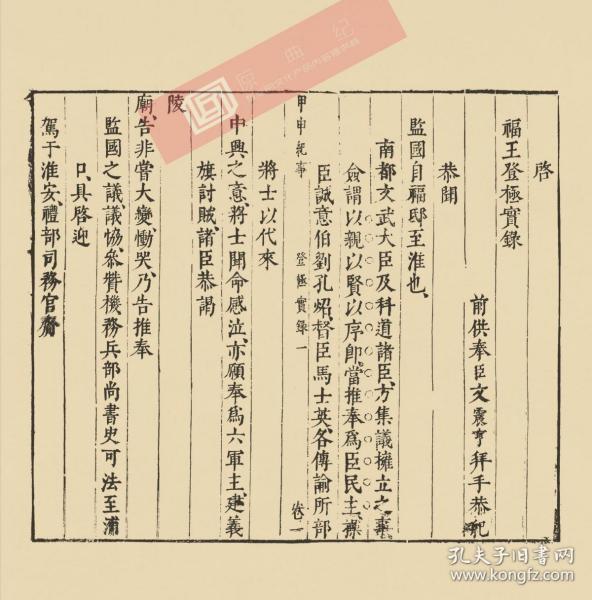 啓
福王登極實錄
前供奉臣文震亨拜手恭紀
恭聞
監國自福邸至淮也、
南都文武大臣及科道諸臣、方集議擁立之事
僉謂以親以賢以序、卽當推奉爲臣民主、
臣誠意伯劉孔炤、督臣馬士英、各傳諭所部
甲申紀事
登極實錄一
卷一
將士以代來
中興之意、將士聞命感泣、亦願奉爲六軍主、建義
旗討賊、諸臣恭謁
陵
廟、告非嘗大變、慟哭、乃告推奉
監國之議、議協、叅贊機務兵部尚書史可法至浦
口、具啓迎
駕于淮安、禮部司務官齎
原曲纪
孔夫子旧书网
www.kongfz.com